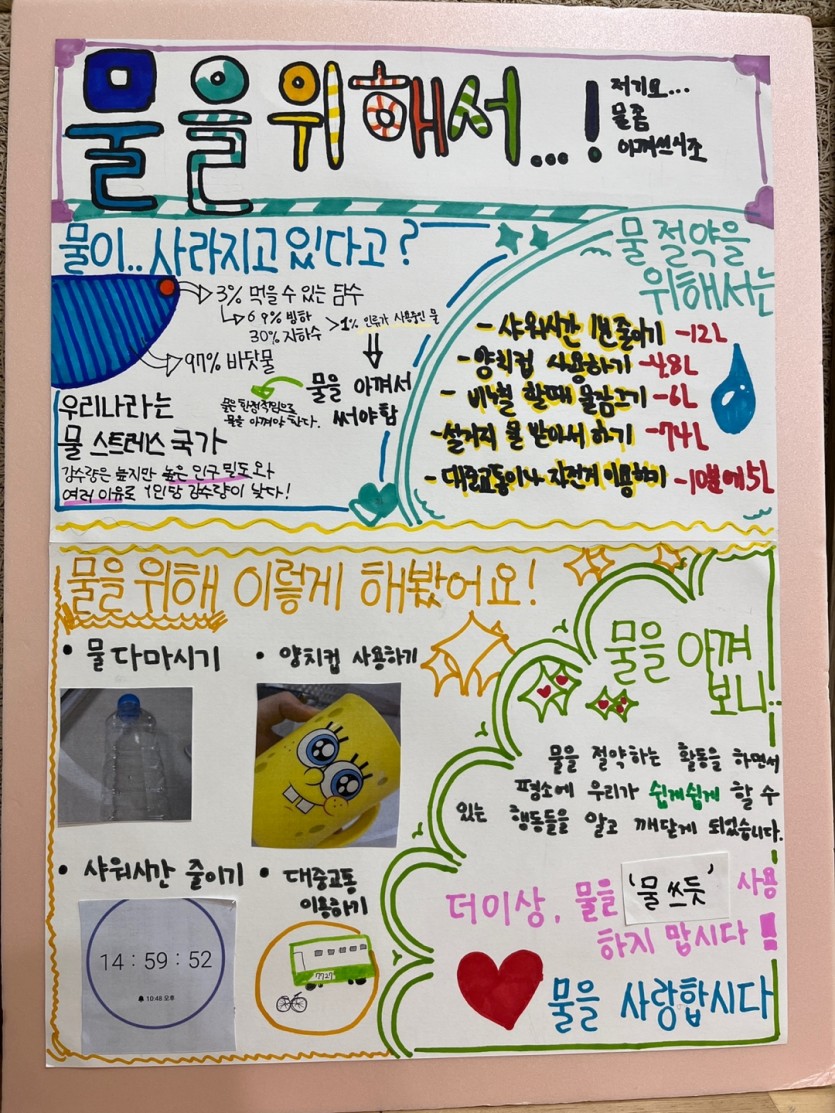 물을 위해서...!
저기요...
물 좀
아껴쓰시죠
물이.. 사라지고 있다고?
3% 먹을 수 있는 담수
69% 빙하
30% 지하수
>1% 인류가 사용중인 물
97% 바닷물
물을 아껴서
써야함
물은 한정적임으로
물을 아껴야 한다.
우리나라는
물 스트레스 국가
강수량은 높지만 높은 인구 밀도와
여러 이유로 1인당 강수량이 낮다!
물 절약을
위해서는
- 샤워시간 1분 줄이기 -12L
- 양치컵 사용하기 -4.8L
- 비누칠 할때 물잠그기 -6L
- 설거지 물 받아서 하기 -74L
- 대중교통이나 자전거 이용하기 -10분에 5L
물을 위해 이렇게 해봤어요!
• 물 다마시기
• 양치컵 사용하기
• 샤워시간 줄이기
14 : 59 : 52
10:46 오후
• 대중교통
이용하기
물을 아껴
보니..
물을 절약하는 활동을 하면서
평소에 우리가 쉽게쉽게 할 수
있는 행동들을 알고 깨닫게 되었습니다.
더이상, 물을 '물 쓰듯' 사용
하지 맙시다!!
물을 사랑합시다